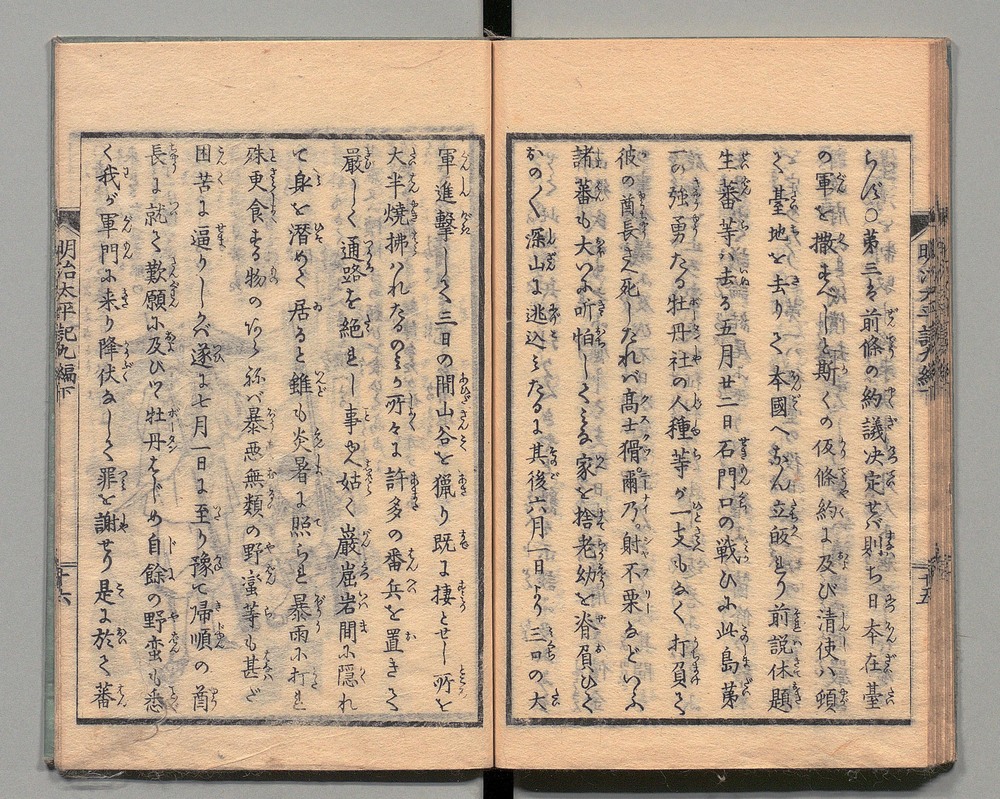 らん○第三は前條の約議决定せバ則ち日本在臺
の軍を撒すべしと斯くの仮條約に及び清使ハ頓
て臺地を去りて本國へなん立皈せり前説休題
生蕃等ハ去る五月廿二日石門口の戦ひに此島第
一の強勇たる牡丹社の人種等が一支もなく打負て
彼の酋長さへ死したれバ髙士猾爾乃射不栗などいふ
諸蕃も大いに听怕しくみな家を捨老幼を脊負ひて
おの〱深山に逃込みたるに其後六月一日より三口の大
軍進撃しく三日の間山谷を獵り既に棲とせし所を
大半焼拂ハれたるのみか所々に許多の番兵を置きて
嚴しく通路を絶せし事ゆゑ姑く巖崫岩間に隠れ
て身を潜めて居ると雖も炎暑に照られ暴雨に打れ
殊更食する物のなら ねバ暴惡無類の野蛮等も甚ど
困苦に逼りしかバ遂に七月一日に至り豫て帰順の酋
長に就て歎願に及びひ牡丹はじめ自餘の野蛮も悉
く我が軍門に来り降伏なして罪を謝せり是に於て蕃
明治太平記九編下
十五
明治太平記九編下
十六